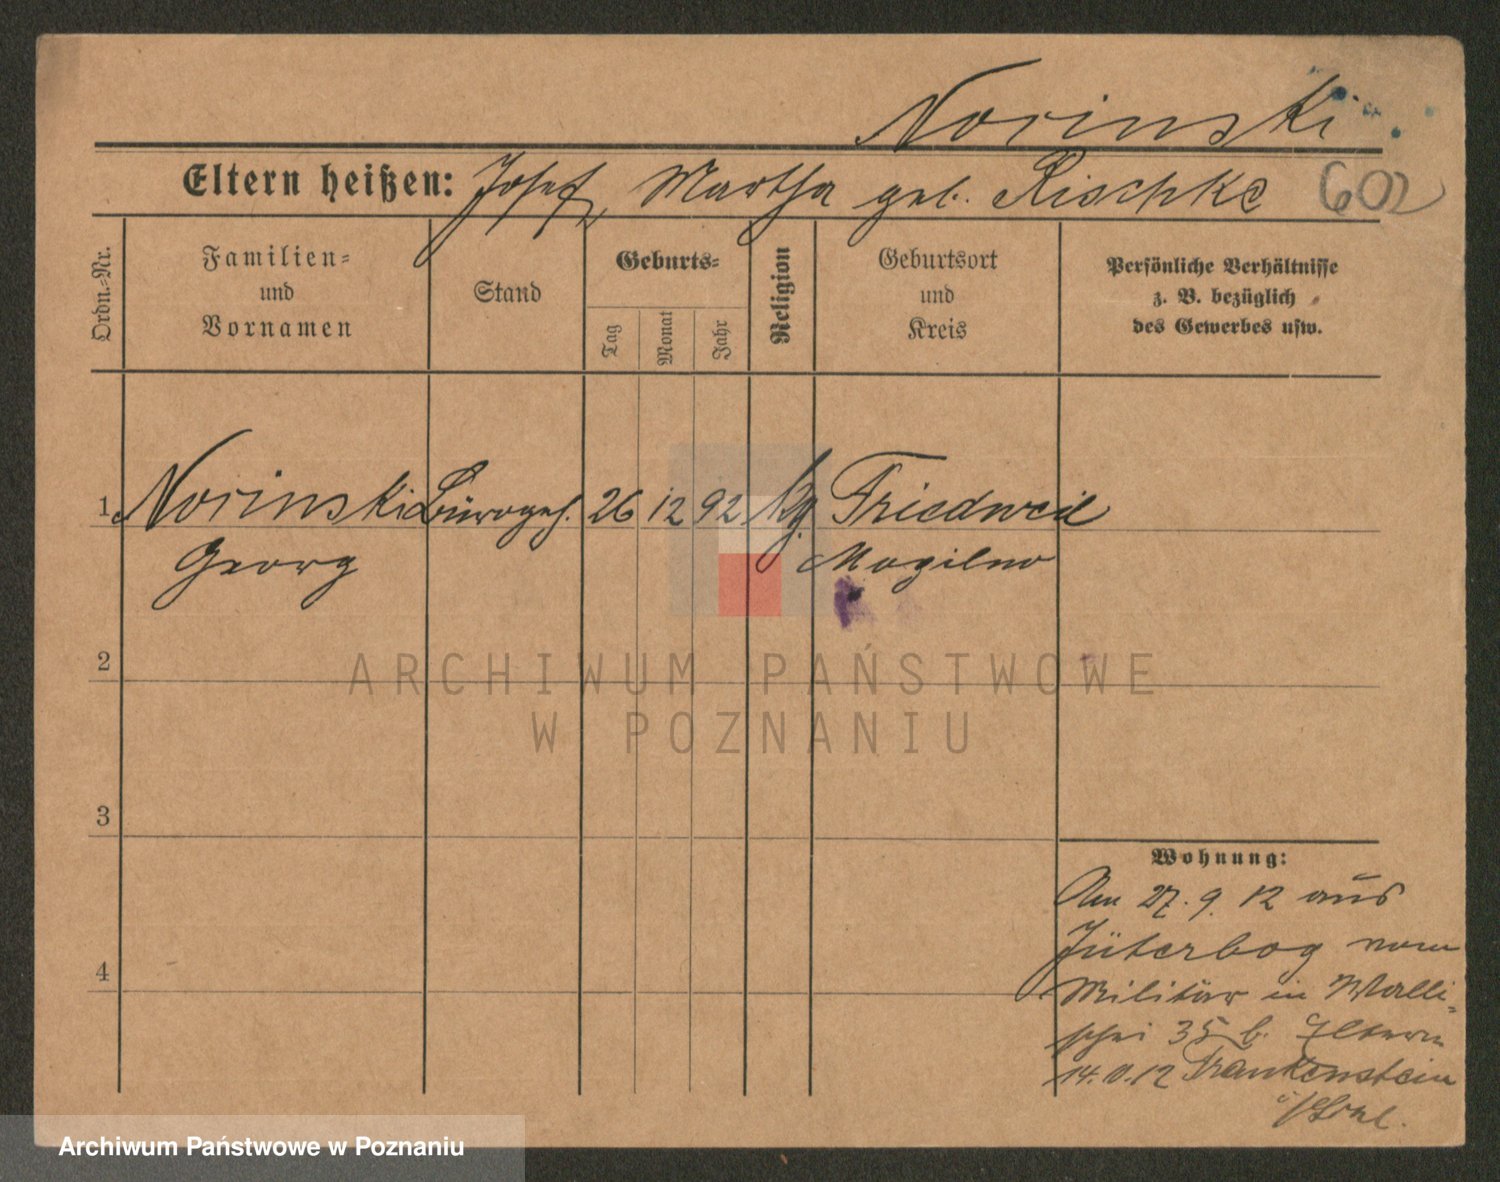 Norinski
Eltern heißen: Josef, Martha geb. Rischke 602
Ordn.-Nr.
Familien-
und
Vornamen
Stand
Geburts-
Tag
Monat
Jahr
Religion
Geburtsort
und
Kreis
Persönliche Verhältnisse
z. B. bezüglich
des Gewerbes usw.
1 Norinski Bürogeh. 26 12 92 kg Friedweil
Georg Mogilno
2
ARCHIWUM PAŃSTWOWE
W POZNANIU
3
4
Wohnung:
Am 27. 9. 12 aus
Jüterbog vom
Militär in Walli-
schei 35 b. Eltern
Frankenstein
Archiwum Państwowe w Poznaniu